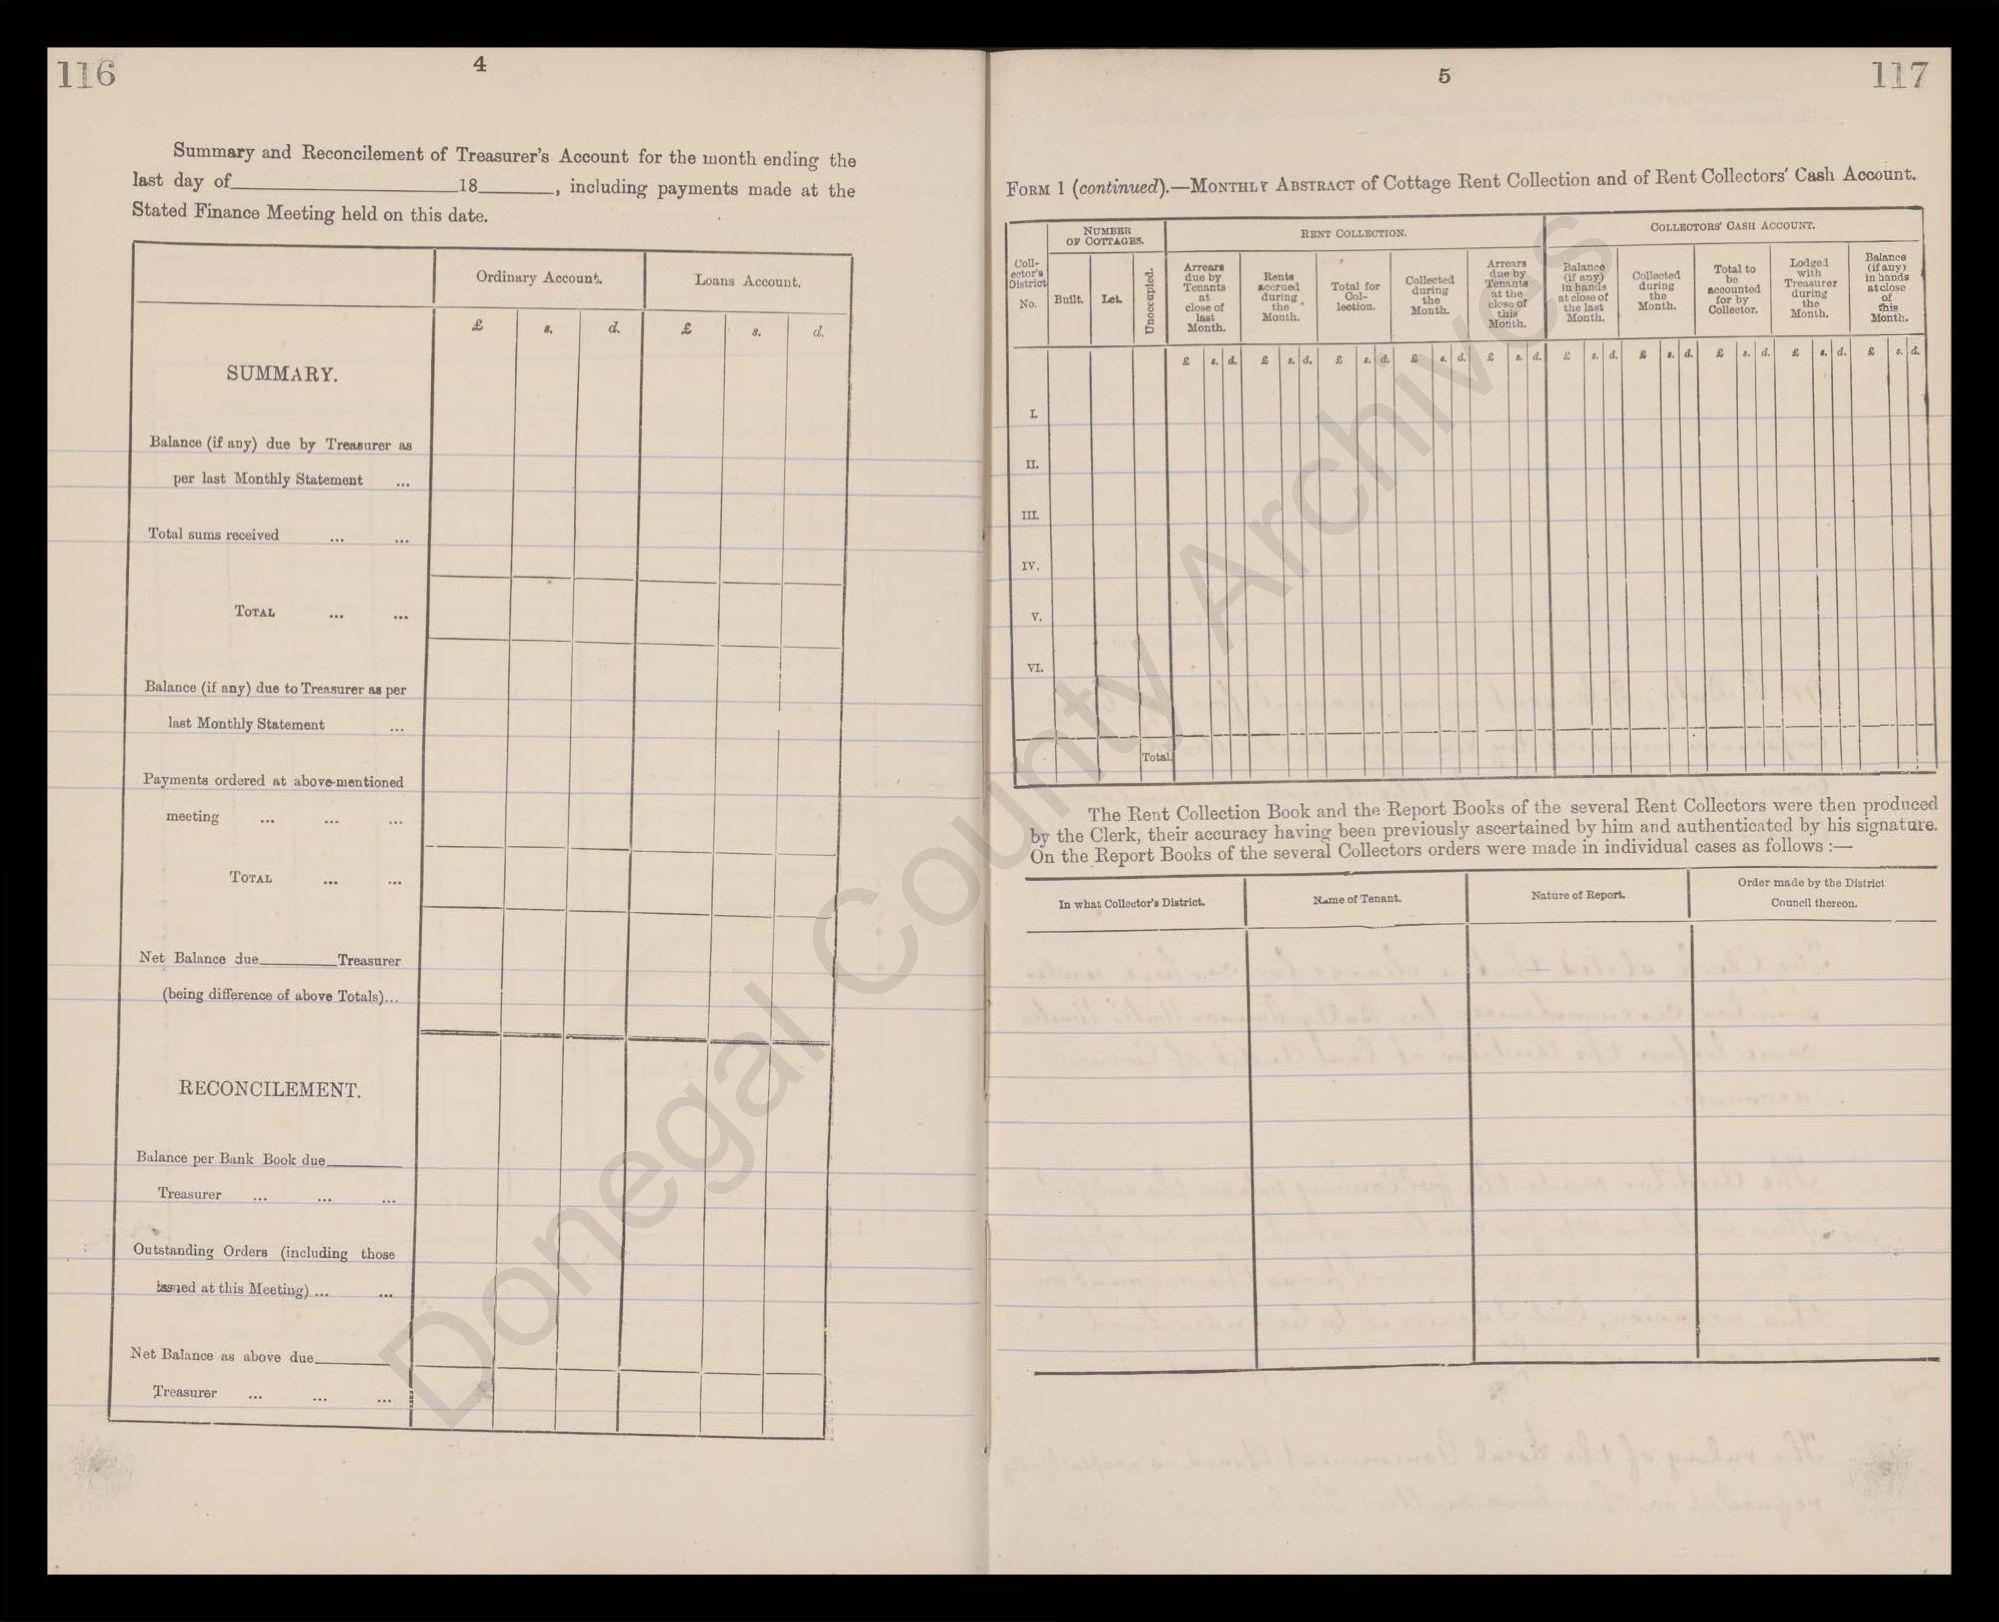 116
4
Summary and Reconcilement of Treasurer's Account for the month ending the
last day of 18 , including payments made at the
Stated Finance Meeting held on this date.
Ordinary Account. Loans Account.
£ s. d. £ s. d.
SUMMARY.
Balance (if any) due by Treasurer as
per last Monthly Statement ...
Total sums received ... ...
TOTAL ... ...
Balance (if any) due to Treasurer as per
last Monthly Statement ...
Payments ordered at above-mentioned
meeting ... ... ...
TOTAL ... ...
Net Balance due Treasurer
(being difference of above Totals)...
RECONCILEMENT.
Balance per Bank Book due
Treasurer ... ... ...
Outstanding Orders (including those
issued at this Meeting) ... ...
Net Balance as above due
Treasurer ... ... ...
5
117
FORM 1 (continued).—MONTHLY ABSTRACT of Cottage Rent Collection and of Rent Collectors' Cash Account.
Collector's District No.
NUMBER
OF COTTAGES.
Built. Let. Unoccupied.
RENT COLLECTION.
Arrears
due by
Tenants
at
close of
last
Month.
Rents
accrued
during
the
Month.
Total for
Col-
lection.
Collected
during
the
Month.
Arrears
due by
Tenants
at the
close of
this
Month.
COLLECTORS' CASH ACCOUNT.
Balance
(if any)
in hands
at close of
the last
Month.
Collected
during
the
Month.
Total to
be
accounted
for by
Collector.
Lodged
with
Treasurer
during
the
Month.
Balance
(if any)
in hands
at close
of
this
Month.
£ s. d. £ s. d. £ s. d. £ s. d. £ s. d. £ s. d. £ s. d. £ s. d. £ s. d. £ s. d.
I.
II.
III.
IV.
V.
VI.
Total.
The Rent Collection Book and the Report Books of the several Rent Collectors were then produced
by the Clerk, their accuracy having been previously ascertained by him and authenticated by his signature.
On the Report Books of the several Collectors orders were made in individual cases as follows :—
In what Collector's District. Name of Tenant. Nature of Report. Order made by the District
Council thereon.
Donegal County Archives